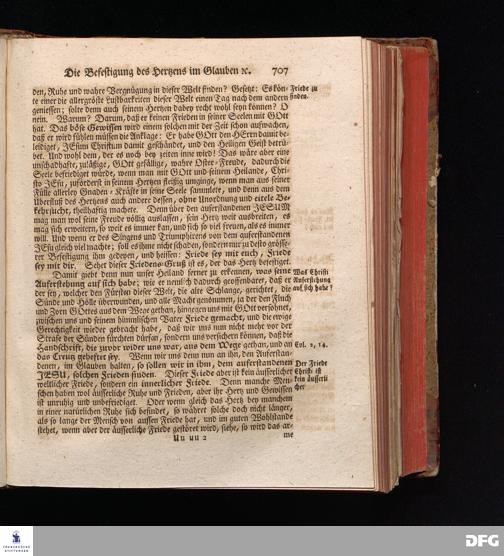 Die Befestigung des Hertzens im Glauben ꝛc. 707
den, Ruhe und wahre Vergnügung in dieser Welt finden? Gesetzt: Es kön-
te einer die allergröste Lustbarkeiten dieser Welt einen Tag nach dem andern
geniessen; solte denn auch seinem Hertzen dabey recht wohl seyn können? O
nein. Warum? Darum, daß er keinen Frieden in seiner Seelen mit GOtt
hat. Das böse Gewissen wird einem solchen mit der Zeit schon aufwachen,
daß er wird fühlen müssen die Anklage: Er habe GOtt den HErrn damit be-
leidiget, JEsum Christum damit geschändet, und den Heiligen Geist betrü-
bet. Und wohl dem, der es noch bey zeiten inne wird! Das wäre aber eine
unschadhafte, zuläßige, GOtt gefällige, wahre Oster-Freude, dadurch die
Seele befriediget würde, wenn man mit GOtt und seinem Heilande, Chri-
sto JEsu, zuforderst in seinem Hertzen fleißig umginge, wenn man aus seiner
Fülle allerley Gnaden-Kräfte in seine Seele sammlete, und denn aus dem
Uberfluß des Hertzens auch andere dessen, ohne Unordnung und eitele Be-
kehrsucht, theilhaftig machete. Denn über den auferstandenen JESUM
mag man wol seine Freude völlig auslassen, sein Hertz weit ausbreiten, es
mag sich erweitern, so weit es immer kan, und sich so viel freuen, als es immer
will. Und wenn er des Singens und Triumphirens von dem auferstandenen
JEsu gleich viel machte; soll es ihme nicht schaden, sondern nur zu desto grösse-
rer Befestigung ihm gedeyen, und heissen: Friede sey mit euch, Friede
sey mit dir. Sehet dieser Friedens-Gruß ist es, der das Hertz befestiget.
Damit giebt denn nun unser Heiland ferner zu erkennen, was seine
Auferstehung auf sich habe; wie er nemlich dadurch geoffenbaret, daß er
der sey, welcher den Fürsten dieser Welt, die alte Schlange, gerichtet, die
Sünde und Hölle überwunden, und alle Macht genommen, ja der den Fluch
und Zorn GOttes aus dem Wege gethan, hingegen uns mit GOtt versöhnet,
zwischen uns und seinem himmlischen Vater Friede gemacht, und die ewige
Gerechtigkeit wieder gebracht habe, daß wir uns nun nicht mehr vor der
Strafe der Sünden fürchten dürfen, sondern uns versichern können, daß die
Handschrift, die zuvor wider uns war, aus dem Wege gethan, und an
das Creutz geheftet sey. Wenn wir uns denn nun an ihn, den Auferstan-
denen, im Glauben halten, so sollen wir in ihm, dem auferstandenen
JESU, solchen Frieden finden. Dieser Friede aber ist kein äusserlicher
weltlicher Friede, sondern ein innerlicher Friede. Denn manche Men-
schen haben wol äusserliche Ruhe und Frieden, aber ihr Hertz und Gewissen
ist unruhig und unbefriediget. Oder wenn gleich das Hertz bey manchem
in einer natürlichen Ruhe sich befindet, so währet solche doch nicht länger,
als so lange der Mensch von aussen Fried hat, und im guten Wohlstande
stehet, wenn aber der äusserliche Friede gestöret wird, siehe, so wird das ar-
Uu uu 2 me
Friede zu
finden.
Was Christi
Auferstehung
auf sich habe?
Col. 2, 14.
Der Friede
Christi ist
kein äusserli
cher
FRANCKESCHE
STIFTUNGEN
DFG